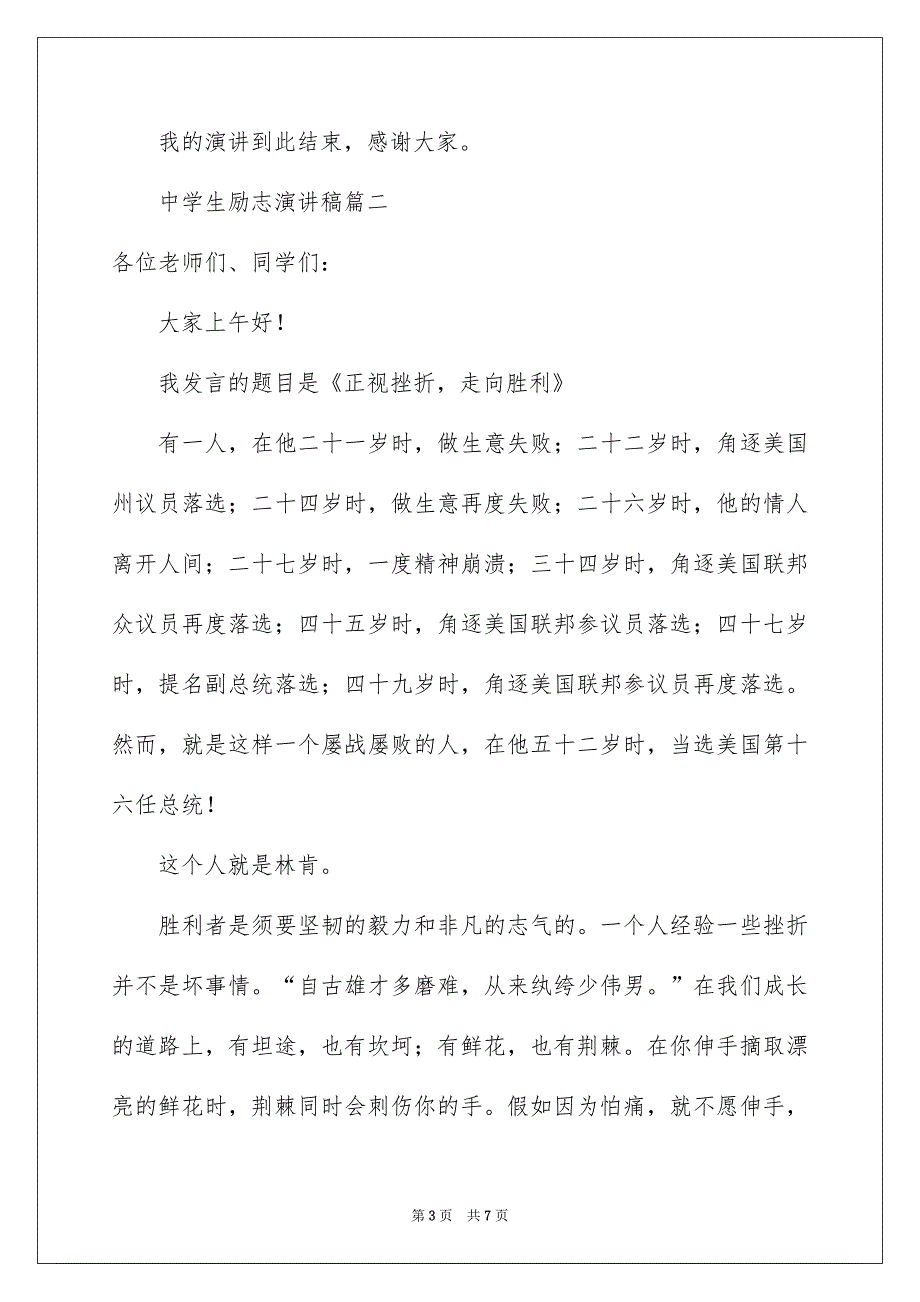 我的演讲到此结束，感谢大家。
中学生励志演讲稿篇二
各位老师们、同学们：
大家上午好！
我发言的题目是《正视挫折，走向胜利》
有一人，在他二十一岁时，做生意失败；二十二岁时，角逐美国
州议员落选；二十四岁时，做生意再度失败；二十六岁时，他的情人
离开人间；二十七岁时，一度精神崩溃；三十四岁时，角逐美国联邦
众议员再度落选；四十五岁时，角逐美国联邦参议员落选；四十七岁
时，提名副总统落选；四十九岁时，角逐美国联邦参议员再度落选。
然而，就是这样一个屡战屡败的人，在他五十二岁时，当选美国第十
六任总统！
这个人就是林肯。
胜利者是须要坚韧的毅力和非凡的志气的。一个人经验一些挫折
并不是坏事情。“自古雄才多磨难，从来纨绔少伟男。”在我们成长
的道路上，有坦途，也有坎坷；有鲜花，也有荆棘。在你伸手摘取漂
亮的鲜花时，荆棘同时会刺伤你的手。假如因为怕痛，就不愿伸手，
第 3 页 共 7 页